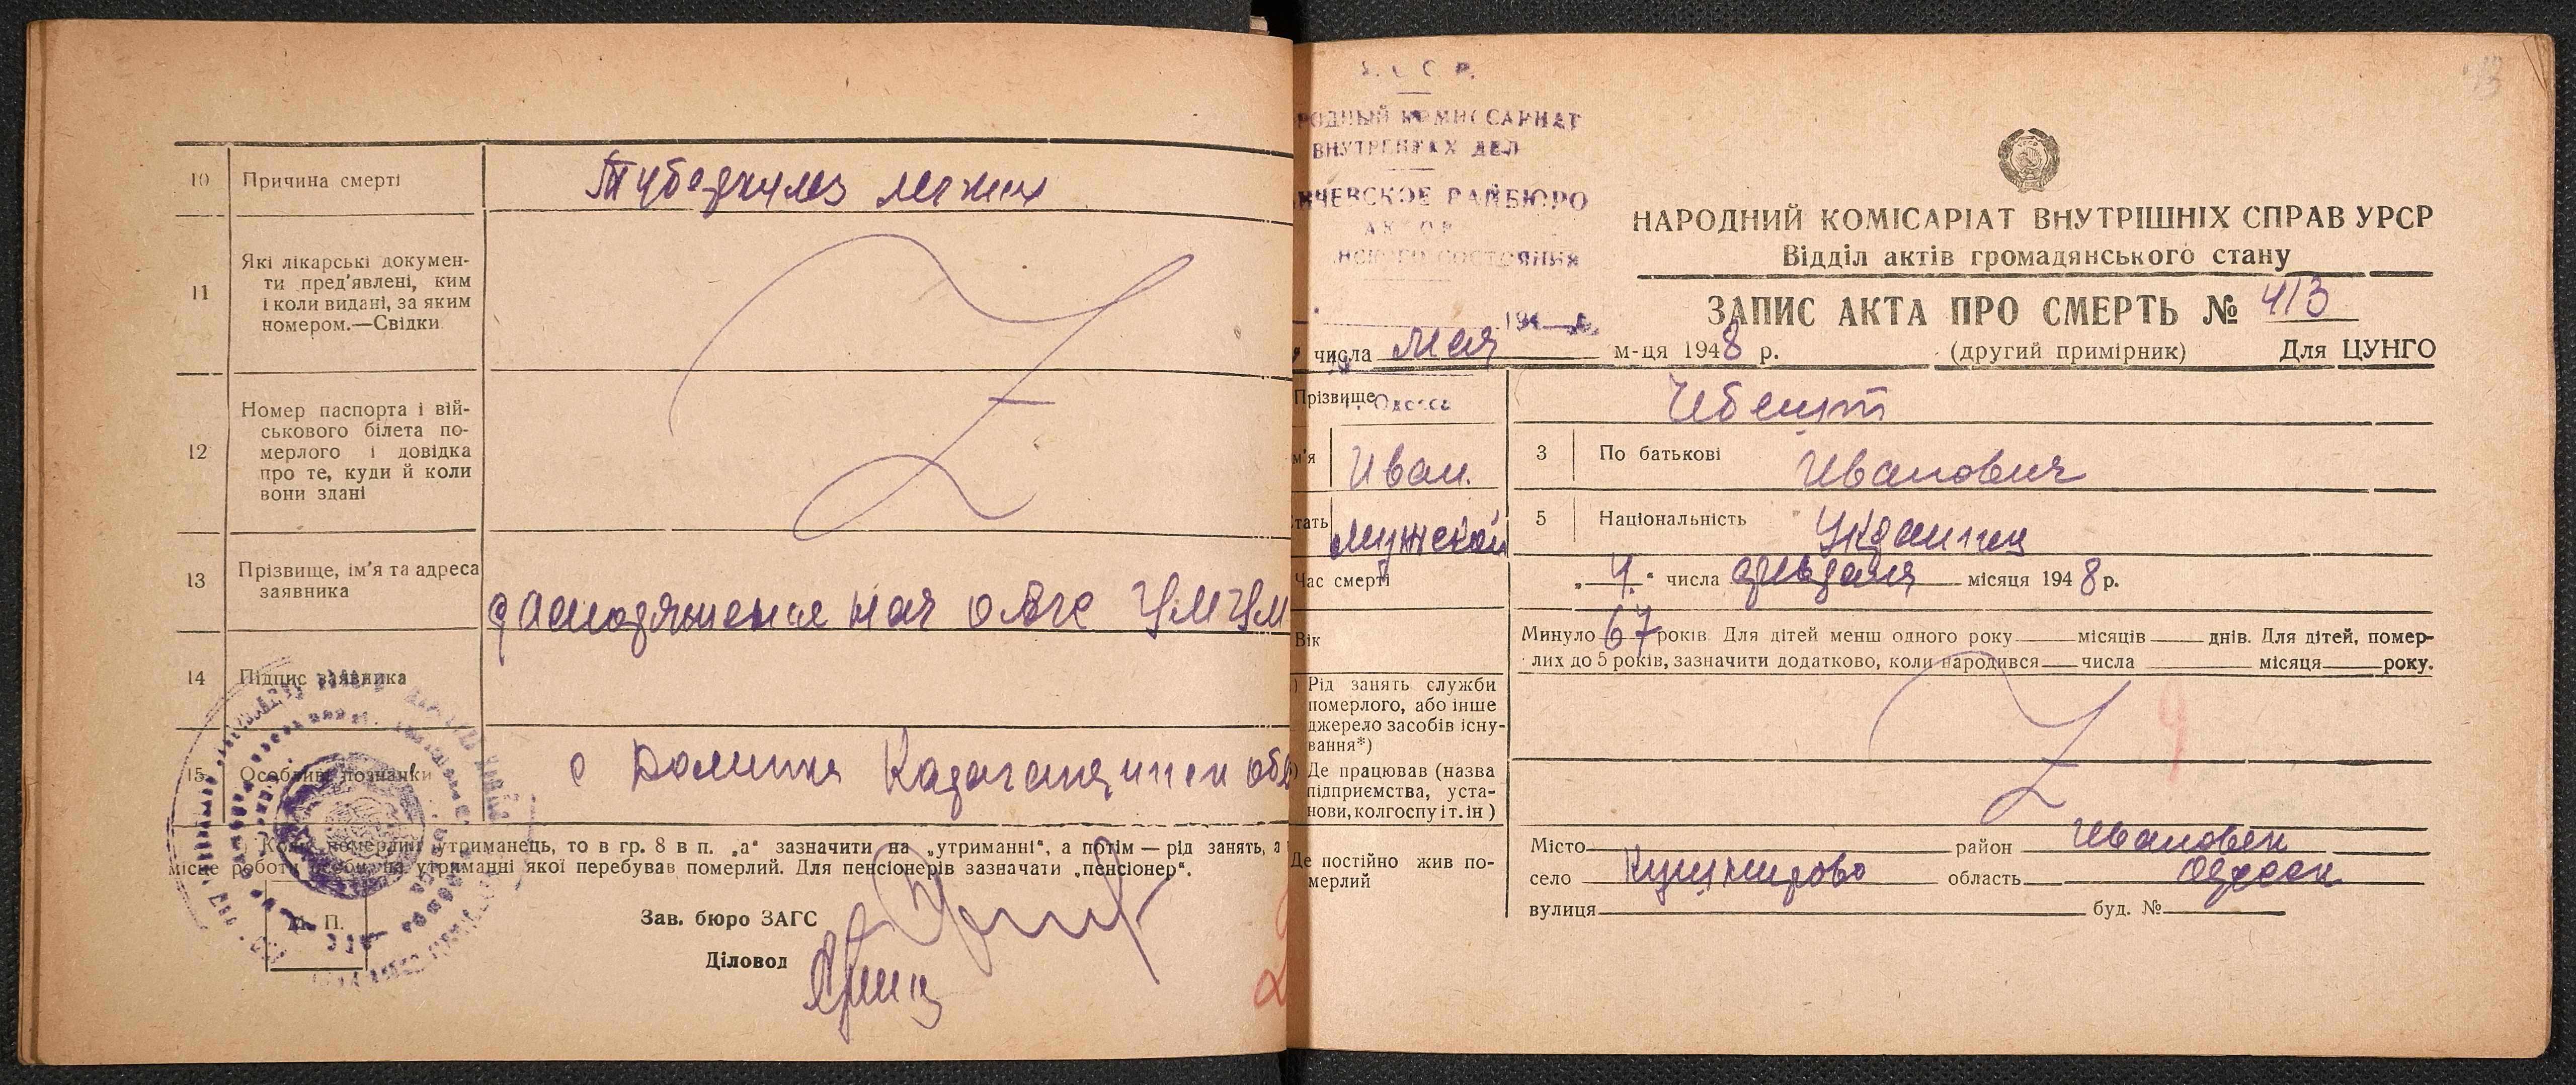 10 Причина смерті Туберкулез легких
11 Які лікарські докумен-
ти пред'явлені, ким
і коли видані, за яким
номером.—Свідки
12 Номер паспорта і вій-
ськового білета по-
мерлого і довідка
про те, куди й коли
вони здані
13 Прізвище, ім'я та адреса
заявника
14 Підпис заявника
15 Особливі познанки с Долинка Карагандинск обл
утриманець, то в гр. 8 в п. „а“ зазначити на „утриманні“, а потім — рід занять, а
місце роботи утриманні якої перебував померлий. Для пенсіонерів зазначати „пенсіонер“.
М. П.
Зав. бюро ЗАГС
Діловод
РОДНЫЙ КОМИССАРИАТ
ВНУТРЕННИХ ДЕЛ
РАЙБЮРО
АКТОВ
СОСТОЯНИЯ
194
г. Одесса
13
НАРОДНИЙ КОМІСАРІАТ ВНУТРІШНІХ СПРАВ УРСР
Відділ актів громадянського стану
ЗАПИС АКТА ПРО СМЕРТЬ № 413
числа мая м-ця 1948 р. (другий примірник) Для ЦУНГО
Прізвище
м'я Иван. 3 По батькові Иванович
тать мужской 5 Національність Украинец
Час смерті „ 4. “ числа февраля місяця 1948 р.
Вік Минуло 67 років. Для дітей менш одного року місяців днів. Для дітей, помер-
лих до 5 років, зазначити додатково, коли народився числа місяця року.
) Рід занять служби
померлого, або інше
джерело засобів існу-
вання*)
) Де працював (назва
підприємства, уста-
нови, колгоспу і т. ін)
Де постійно жив по-
мерлий
Місто район Ивановск
село область Одесск
вулиця буд. №